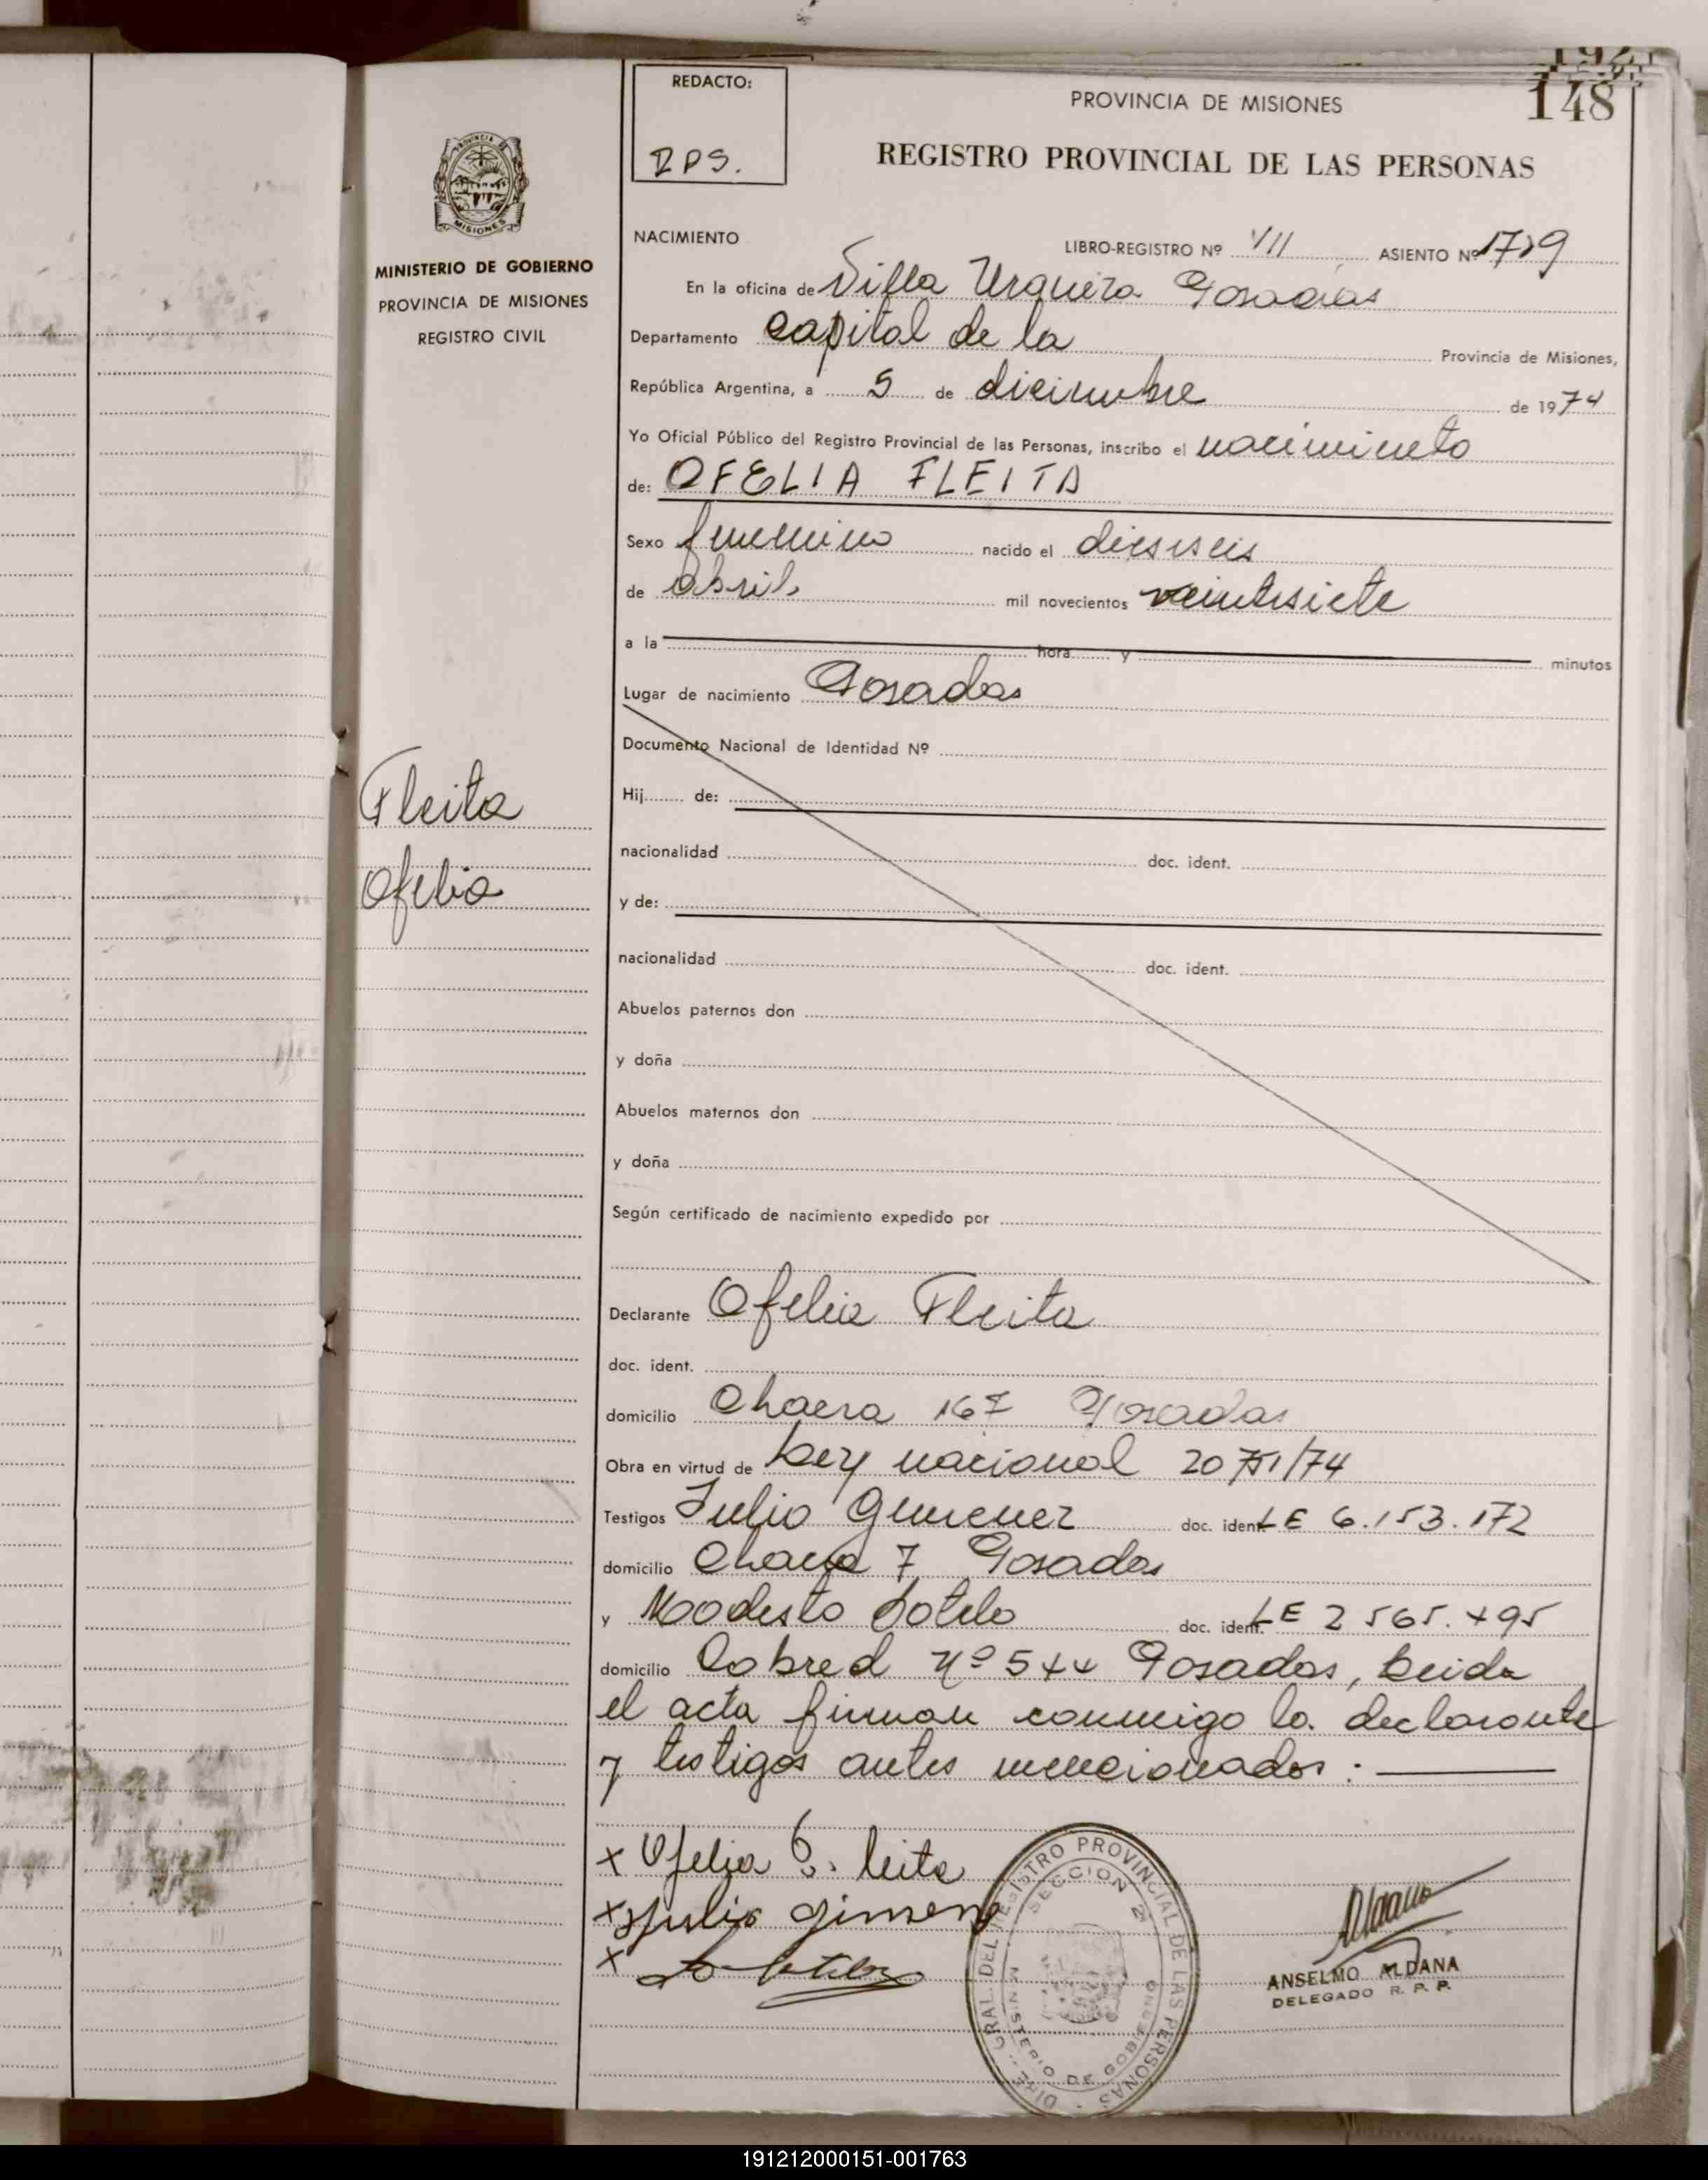 192
148
REDACTO:
RPS.
PROVINCIA DE MISIONES
REGISTRO PROVINCIAL DE LAS PERSONAS
PROVINCIA DE
MISIONES
MINISTERIO DE GOBIERNO
PROVINCIA DE MISIONES
REGISTRO CIVIL
NACIMIENTO LIBRO-REGISTRO Nº VII ASIENTO Nº 1729
En la oficina de Villa Urquiza Posadas
Departamento capital de la Provincia de Misiones,
República Argentina, a 5 de diciembre de 1974
Yo Oficial Público del Registro Provincial de las Personas, inscribo el nacimineto
de: OFELIA FLEITA
Sexo femenino nacido el dieciseis
de Abril mil novecientos veintisiete
a la hora y minutos
Lugar de nacimiento Posadas
Documento Nacional de Identidad Nº
Hij de:
nacionalidad doc. ident.
y de:
nacionalidad doc. ident.
Abuelos paternos don
y doña
Abuelos maternos don
y doña
Según certificado de nacimiento expedido por
Fleita
Ofelia
Declarante Ofelia Fleita
doc. ident.
domicilio Chacra 167 Posadas
Obra en virtud de Ley nacional 20751/74
Testigos Julio Gimenez doc. ident. LE 6.153.172
domicilio Chacra 7 Posadas
y Modesto Sotelo doc. ident. LE 2 565.495
domicilio Cabred Nº 544 Posadas, Leida
el acta firman conmigo la declarante
y testigos antes mencionados:
x Ofelia F. leita
x Julio Gimenez
x Sotelo
DIRE. GRAL. DEL REGISTRO PROVINCIAL DE LAS PERSONAS
SECCION 2ª
MINISTERIO DE GOBIERNO
Aldana
ANSELMO ALDANA
DELEGADO R. P. P.
191212000151-001763